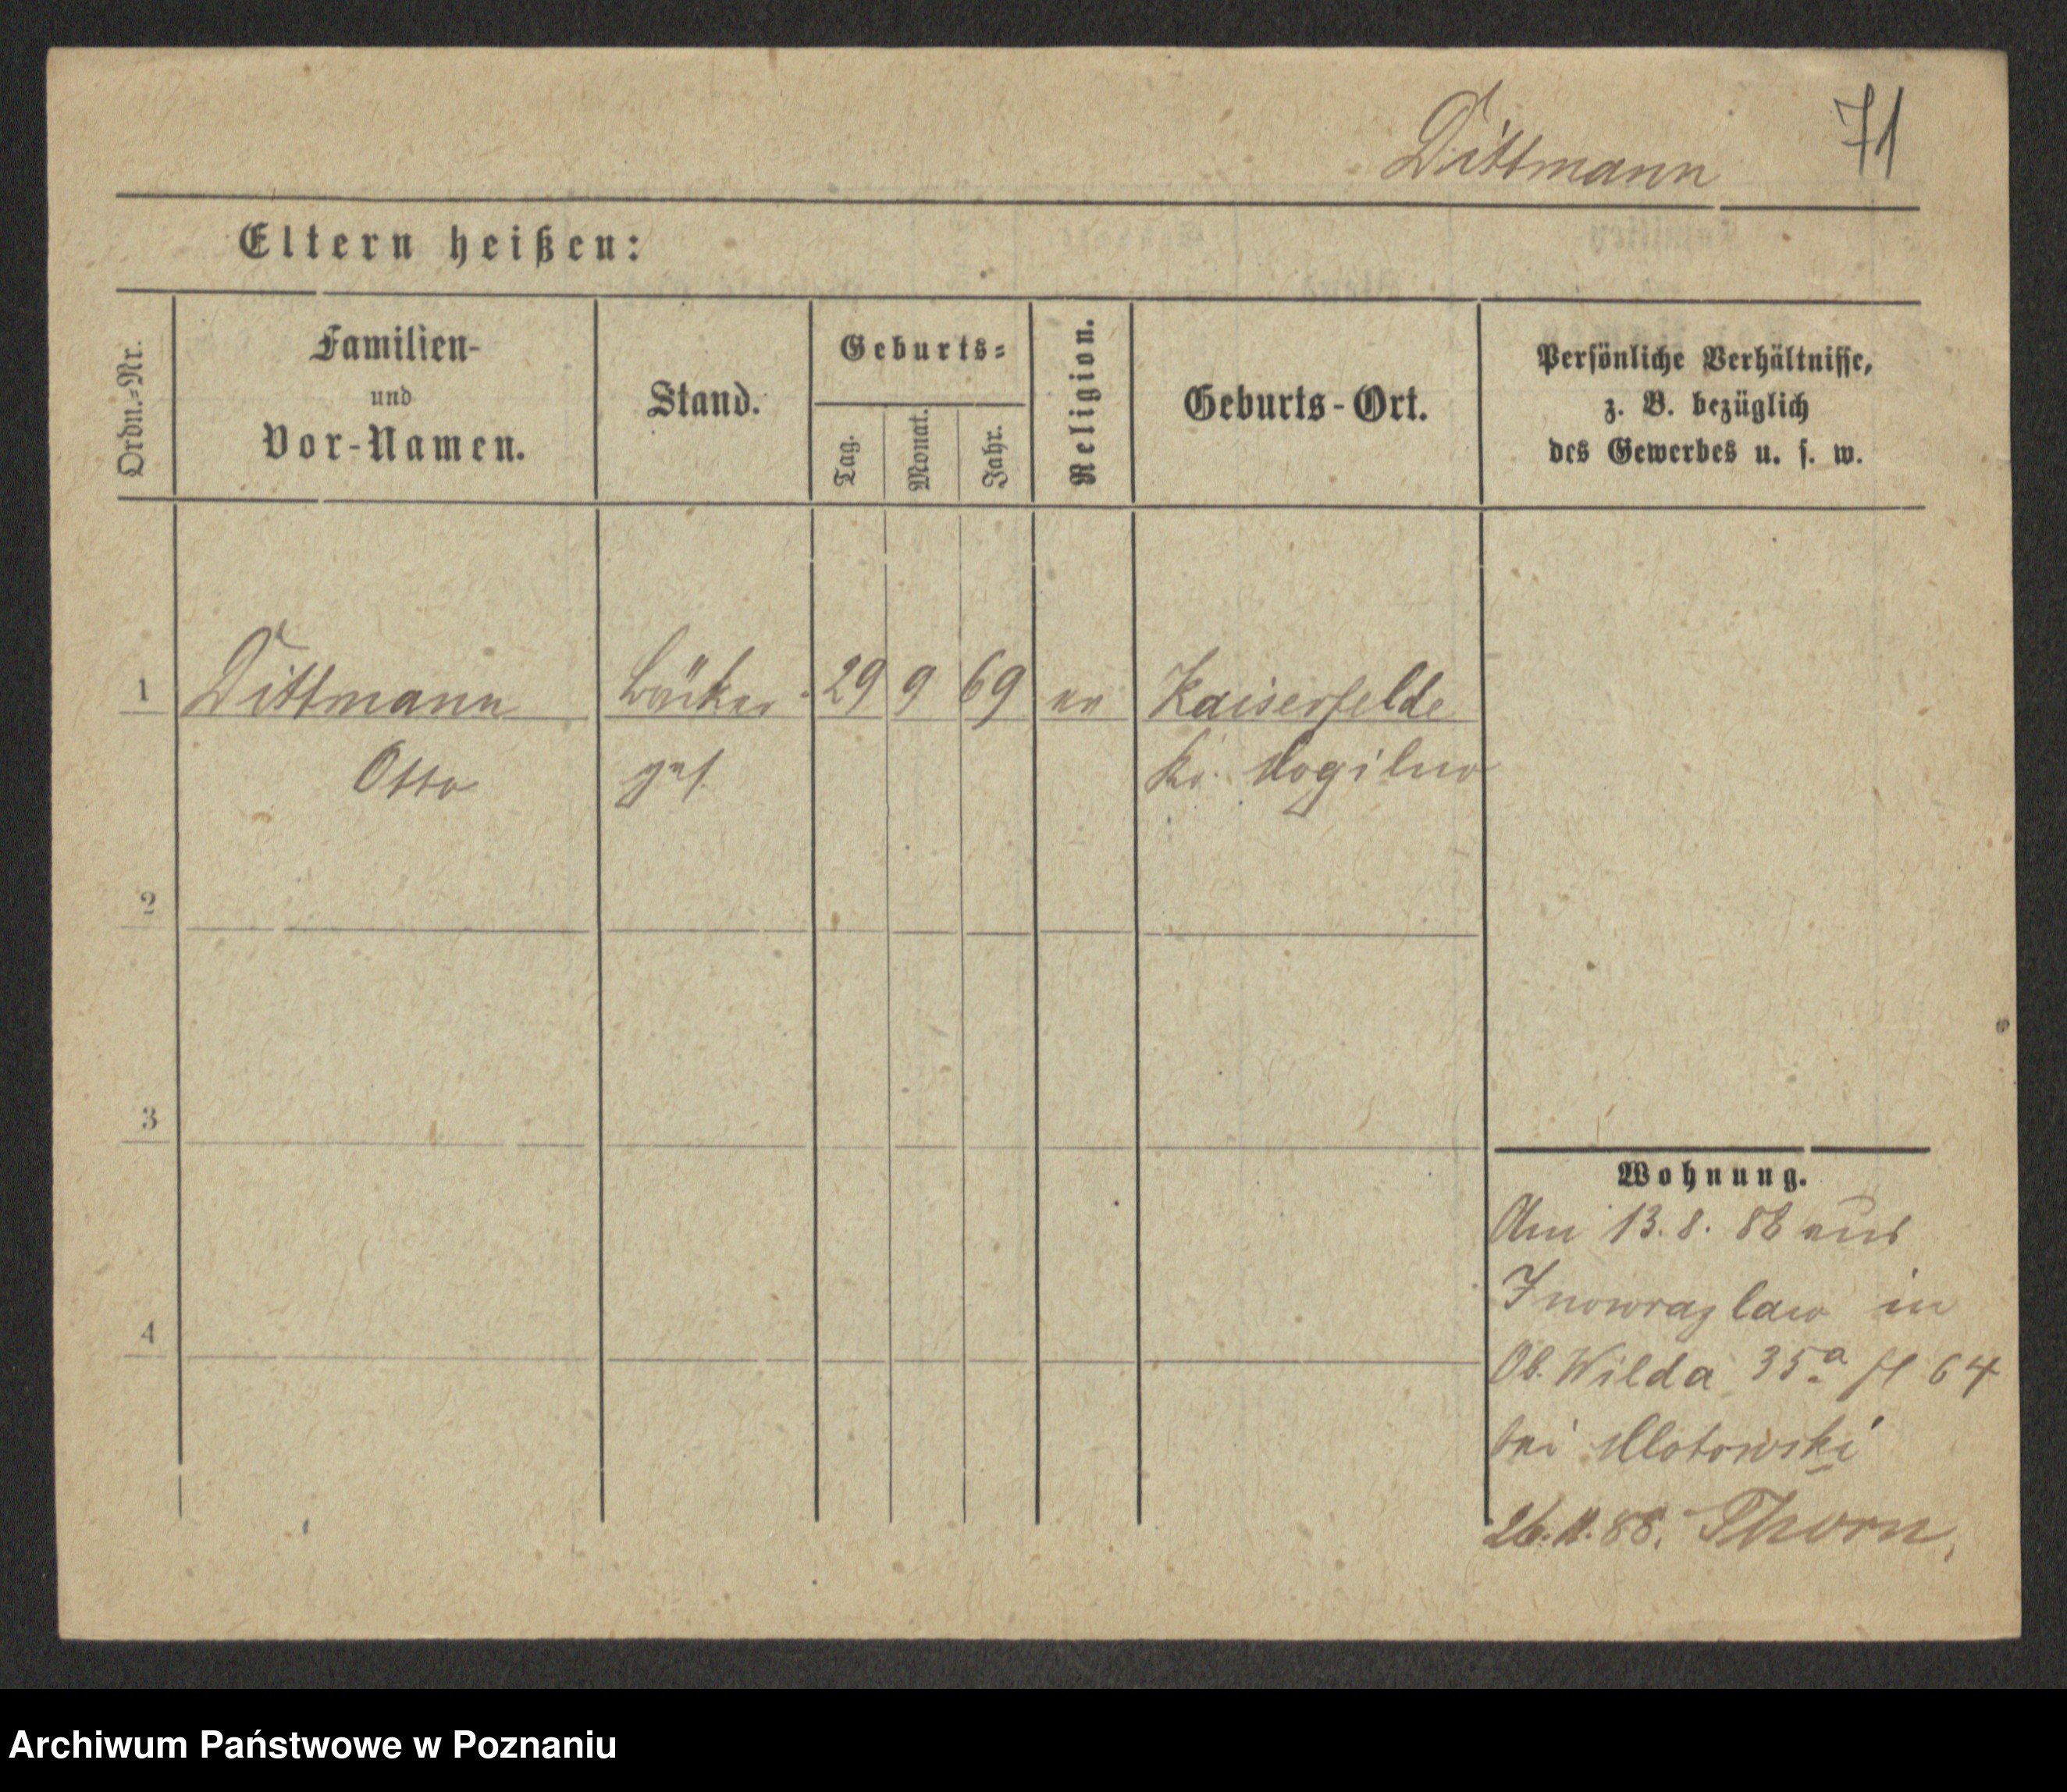 Dittmann
71
Eltern heißen:
Ordn.-Nr.
Familien-
und
Vor-Namen.
Stand.
Geburts-
Tag.
Monat.
Jahr.
Religion.
Geburts-Ort.
Persönliche Verhältnisse,
z. B. bezüglich
des Gewerbes u. s. w.
1 Dittmann Bäcker- 29 9 69 ev Kaiserfelde
Otto gs. Kr. Mogilno
2
3
4
Wohnung.
Am 13.8. 88 aus
Inowrazlaw in
Ob. Wilda 35a 64
bei Mlotowski
26.11.88. Thorn.
Archiwum Państwowe w Poznaniu